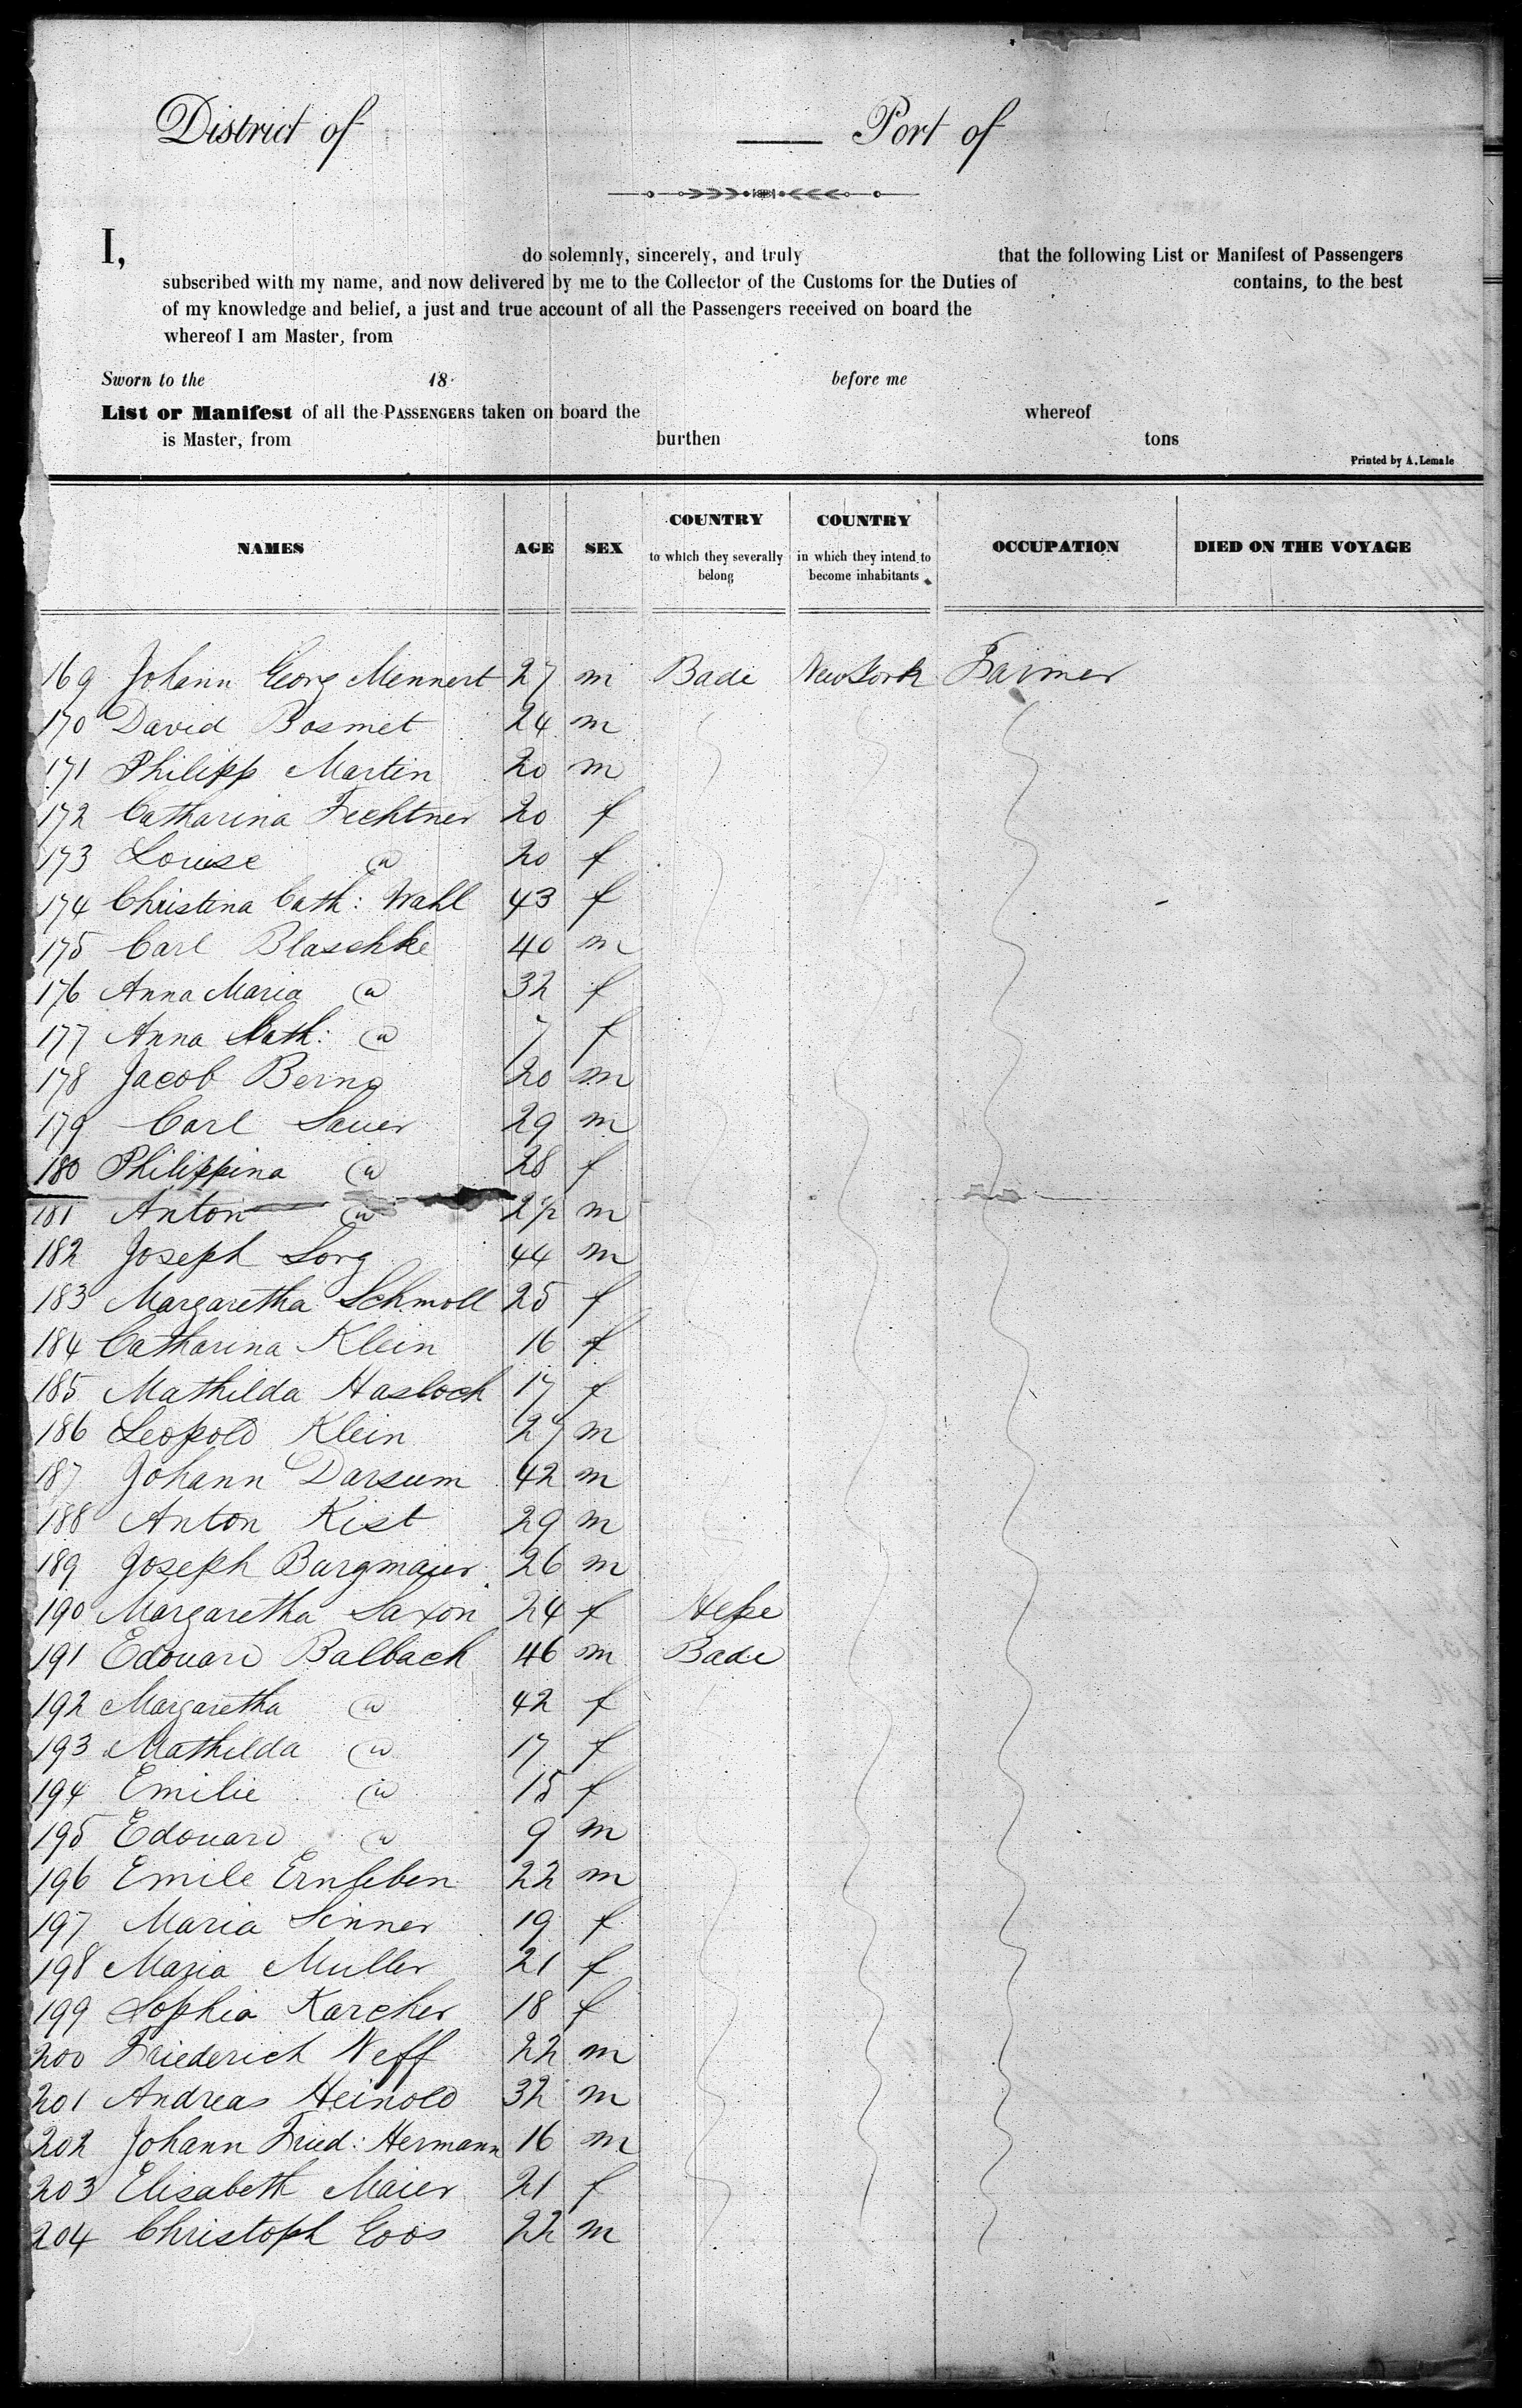 District of Port of
I, do solemnly, sincerely, and truly that the following List or Manifest of Passengers
subscribed with my name, and now delivered by me to the Collector of the Customs for the Duties of contains, to the best
of my knowledge and belief, a just and true account of all the Passengers received on board the
whereof I am Master, from
Sworn to the 18 before me
List or Manifest of all the PASSENGERS taken on board the whereof
is Master, from burthen tons
Printed by A. Lemale
NAMES AGE SEX COUNTRY to which they severally belong COUNTRY in which they intend to become inhabitants OCCUPATION DIED ON THE VOYAGE
169 Johann Georg Mennert 27 m Bade New York Farmer
170 David Bosmet 24 m
171 Philipp Martin 20 m
172 Catharina Fechtner 20 f
173 Louise @ 20 f
174 Christina Cath: Wahl 43 f
175 Carl Blaschke 40 m
176 Anna Maria @ 32 f
177 Anna Cath: @ 7 f
178 Jacob Berng 20 m
179 Carl Sauer 29 m
180 Philippina @ 28 f
181 Anton @ 2 1/2 m
182 Joseph Sorg 44 m
183 Margaretha Schmoll 25 f
184 Catharina Klein 16 f
185 Mathilda Hasloch 17 f
186 Leopold Klein 27 m
187 Johann Darsum 42 m
188 Anton Kist 29 m
189 Joseph Burgmaier 26 m
190 Margaretha Saxon 24 f Hesse
191 Edouard Balbach 46 m Bade
192 Margaretha @ 42 f
193 Mathilda @ 17 f
194 Emilie @ 15 f
195 Edouard @ 9 m
196 Emile Ernleben 22 m
197 Maria Sinner 19 f
198 Maria Muller 21 f
199 Sophia Karcher 18 f
200 Friederich Neff 22 m
201 Andreas Heinold 32 m
202 Johann Fried: Hermann 16 m
203 Elisabeth Maier 21 f
204 Christoph Goos 22 m